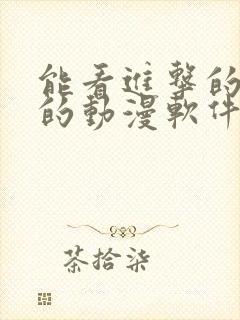 能看進擊的
的動漫軟件
茶拾柒